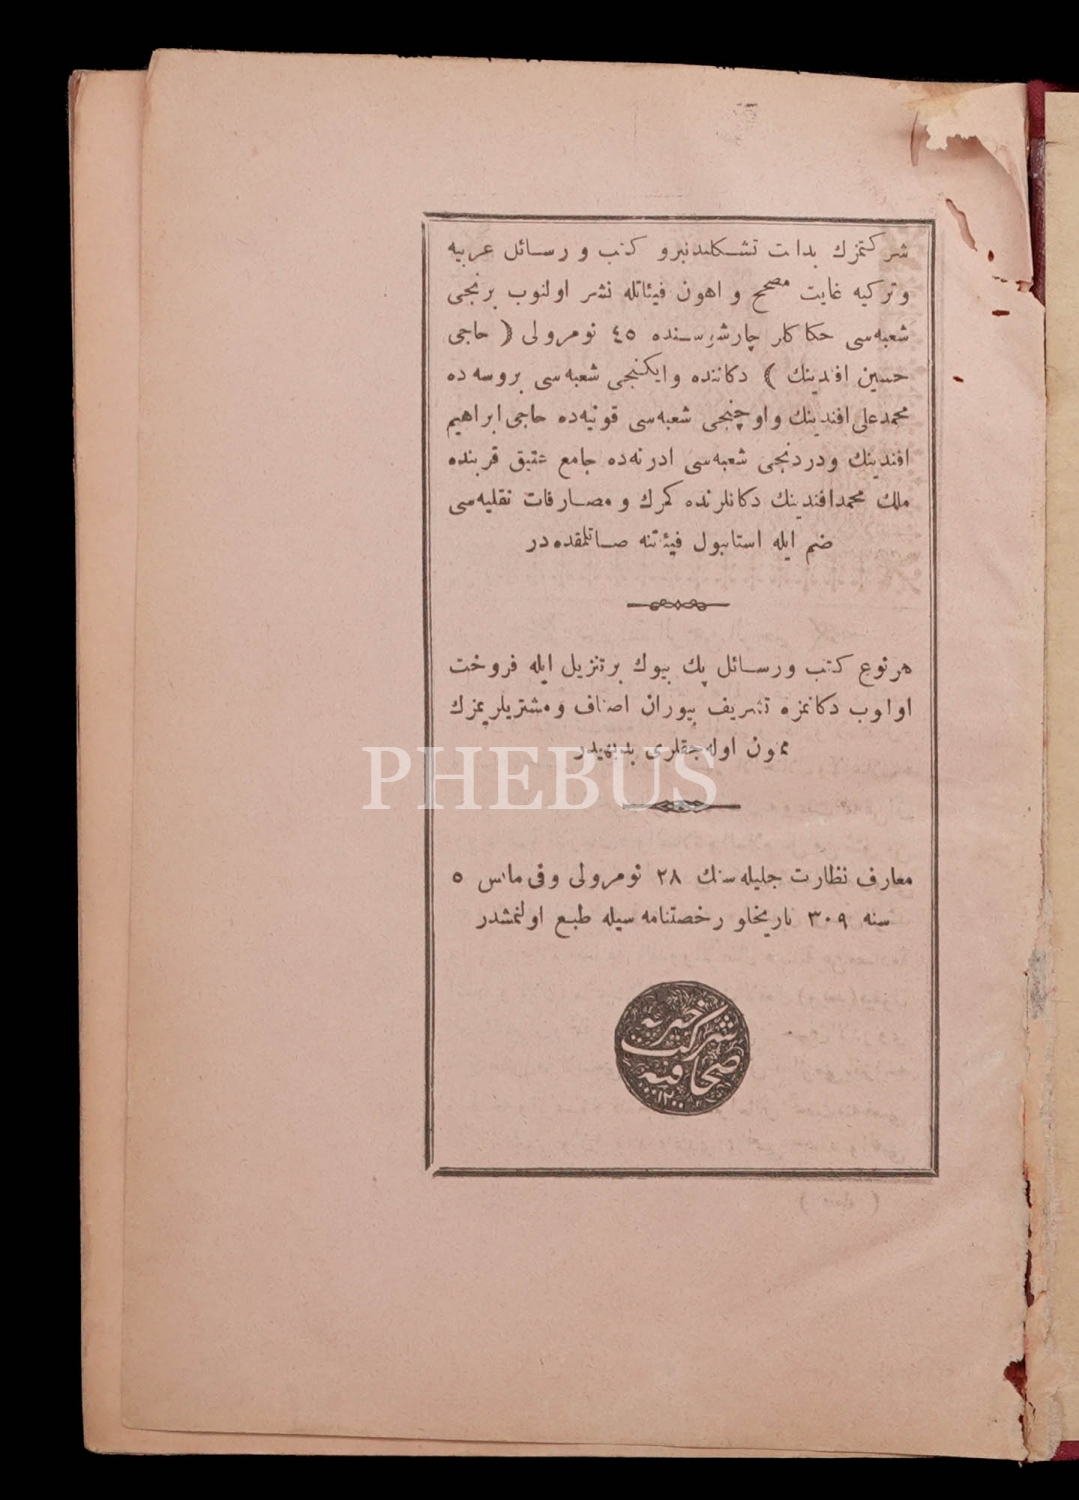 شركتمزك بدات تشكلندنبرو كتب و رسائل عربيه
و تركيه غايت مصحح و اهون فيئاتله نشر اولنوب برنجى
شعبه‌سى حكاكلر چارشوسنده ٤٥ نومرولى ( حاجى
حسين افندينك ) دكاننده و ايكنجى شعبه‌سى بروسه ده
محمد على افندينك و اوچنجى شعبه‌سى قونيه‌ده حاجى ابراهيم
افندينك و دردنجى شعبه‌سى ادرنه‌ده جامع عتيق قربنده
ملك محمد افندينك دكانلرنده كمرك و مصارفات نقليه‌سى
ضم ايله استانبول فيئتنه صاتلمقده در
هر نوع كتب و رسائل پك بيوك بر تنزيل ايله فروخت
اولوب دكانمزه تشريف بيوران اصناف و مشتريلريمزك
ممنون اوله‌جقلرى بديهيدر
PHEBUS
معارف نظارت جليله سنك ٢٨ نومرولى و فى مارس ٥
سنه ٣٠٩ تاريخلو رخصتنامه سيله طبع اولنمشدر
شركت خيريه
صحافيه